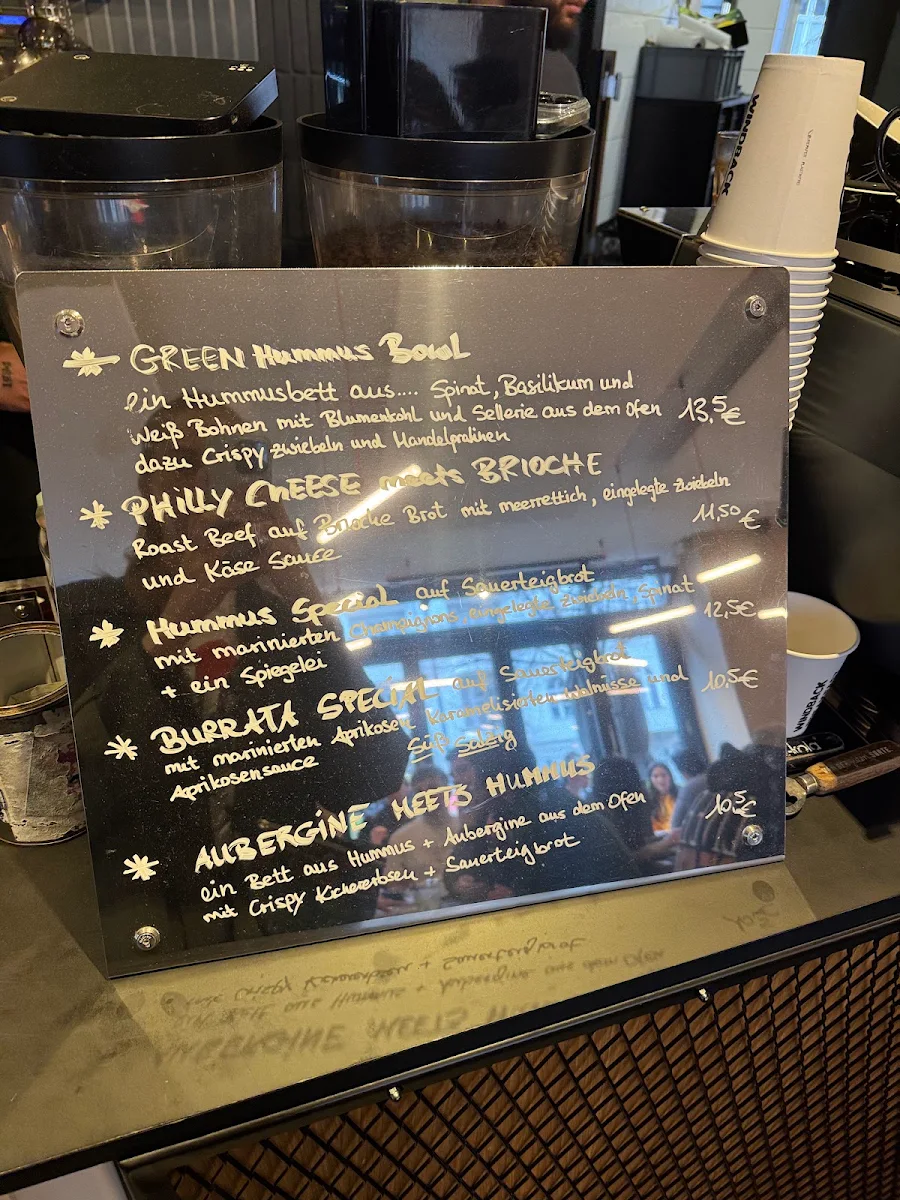 GREEN Hummus Bowl
ein Hummusbett aus.... Spinat, Basilikum und
Weiß Bohnen mit Blumenkohl und Sellerie aus dem Ofen 13,5€
dazu Crispy zwiebeln und Mandelpralinen
PHILLY CHEESE meets BRIOCHE
Roast Beef auf Brioche Brot mit meerrettich, eingelegte zwiebeln
und Käse Sauce 11,50€
Hummus Special auf Sauerteigbrot
mit marinierten Champignons, eingelegte zwiebeln, Spinat 12,5€
+ ein Spiegelei
BURRATA SPECIAL auf Sauerteigbrot
mit marinierten Aprikosen, karamelisierten Walnüsse und 10,5€
Aprikosensauce Süß salzig
AUBERGINE MEETS HUMMUS
ein Bett aus Hummus + Aubergine aus dem Ofen 10,5€
mit Crispy Kichererbsen + Sauerteigbrot
WINDBACK
WINDBACK